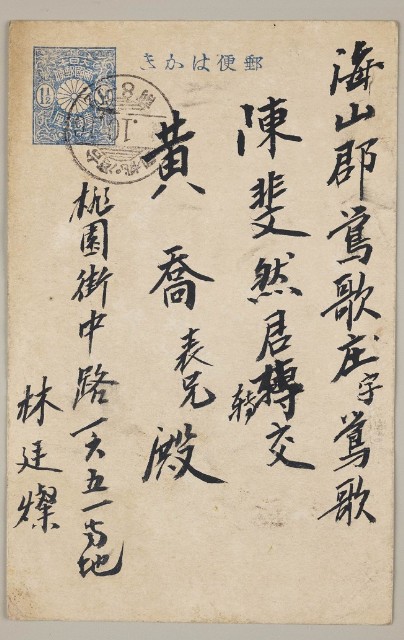 郵便はかき
1½
海山郡鶯歌庄字鶯歌
陳斐然君轉交
轉
黃喬表兄殿
桃園街中路一六五一番地
林廷燦